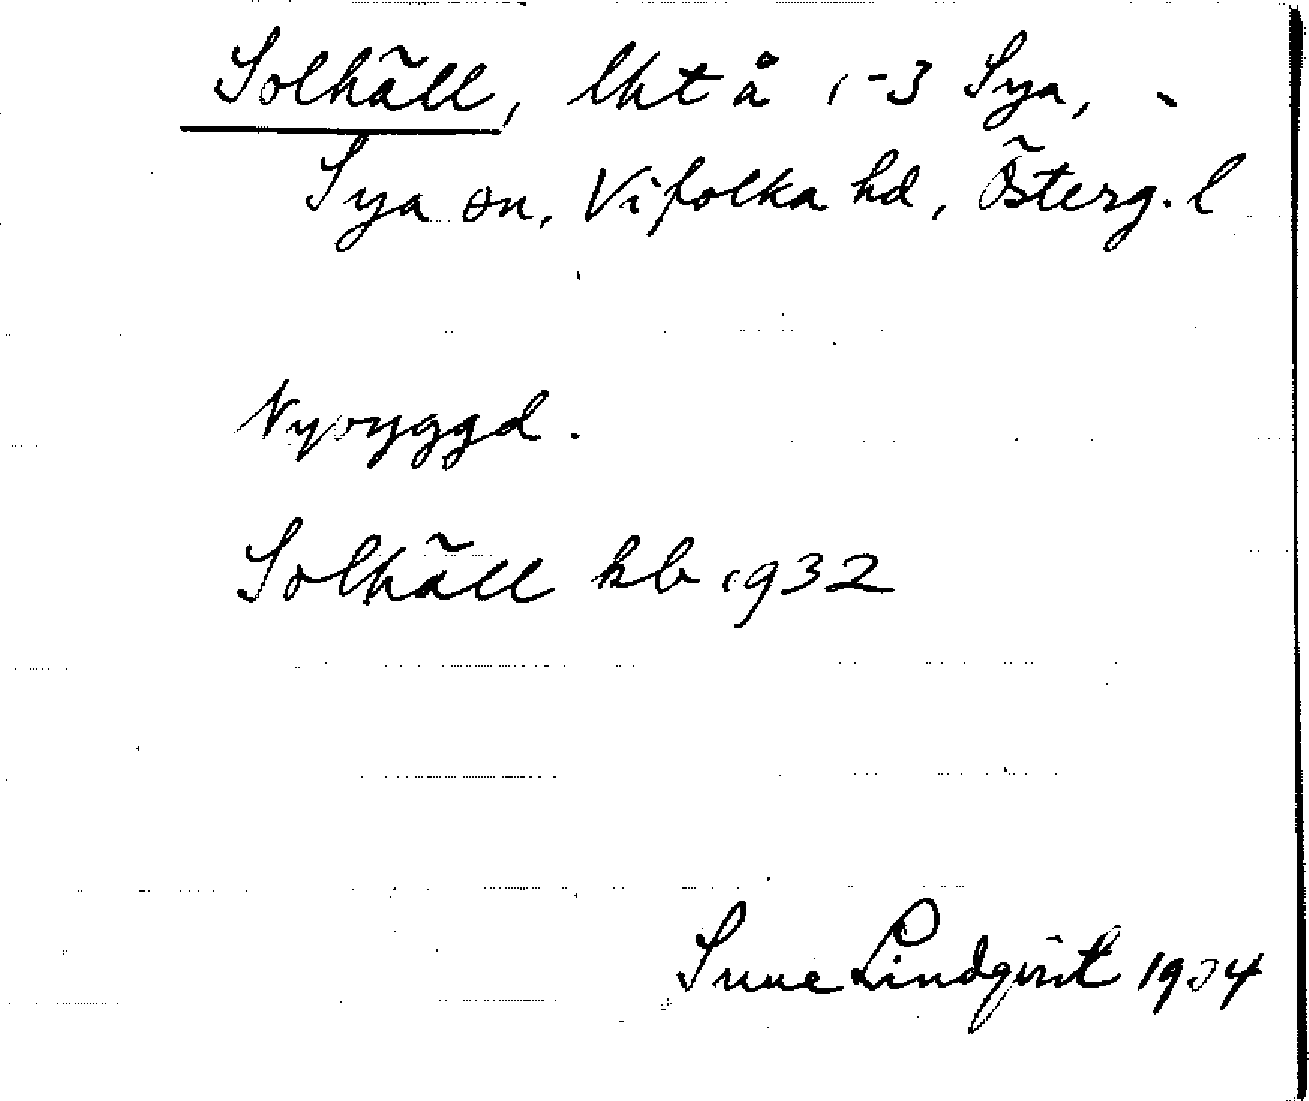 Solhäll, lht å 1-3 Sya, -
Sya sn, Vifolka hd, Österg. l
Nybyggd.
Solhäll kb 1932
Sune Lindqvist 1934